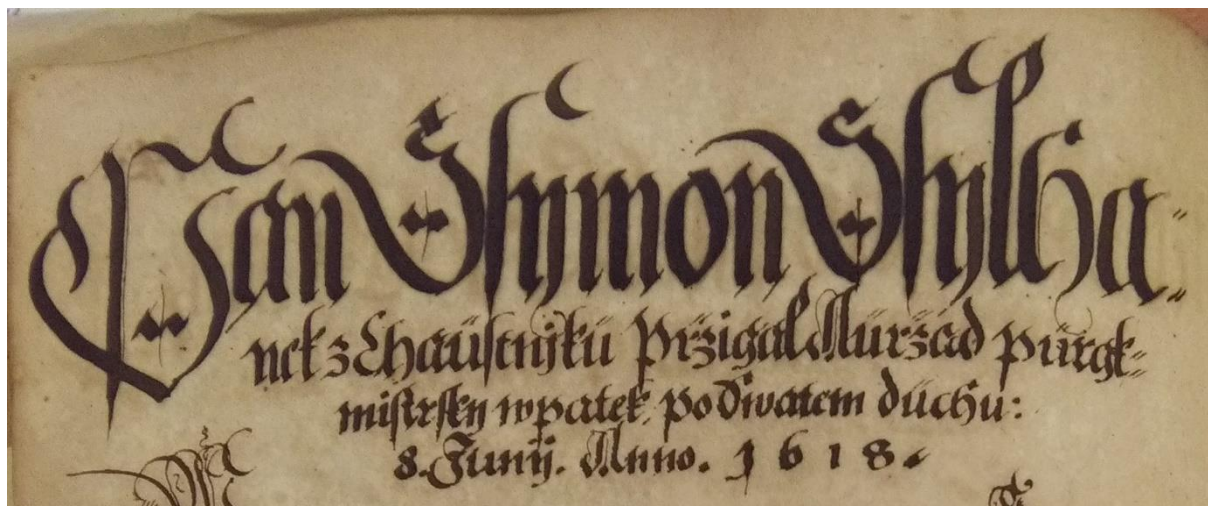 Pan Ssymon Ssylha-
nek z Chaustniku Przigal Aurzad purgk-
mistrsky w patek po Swatem duchu:
8. Junij. Anno. 1618.